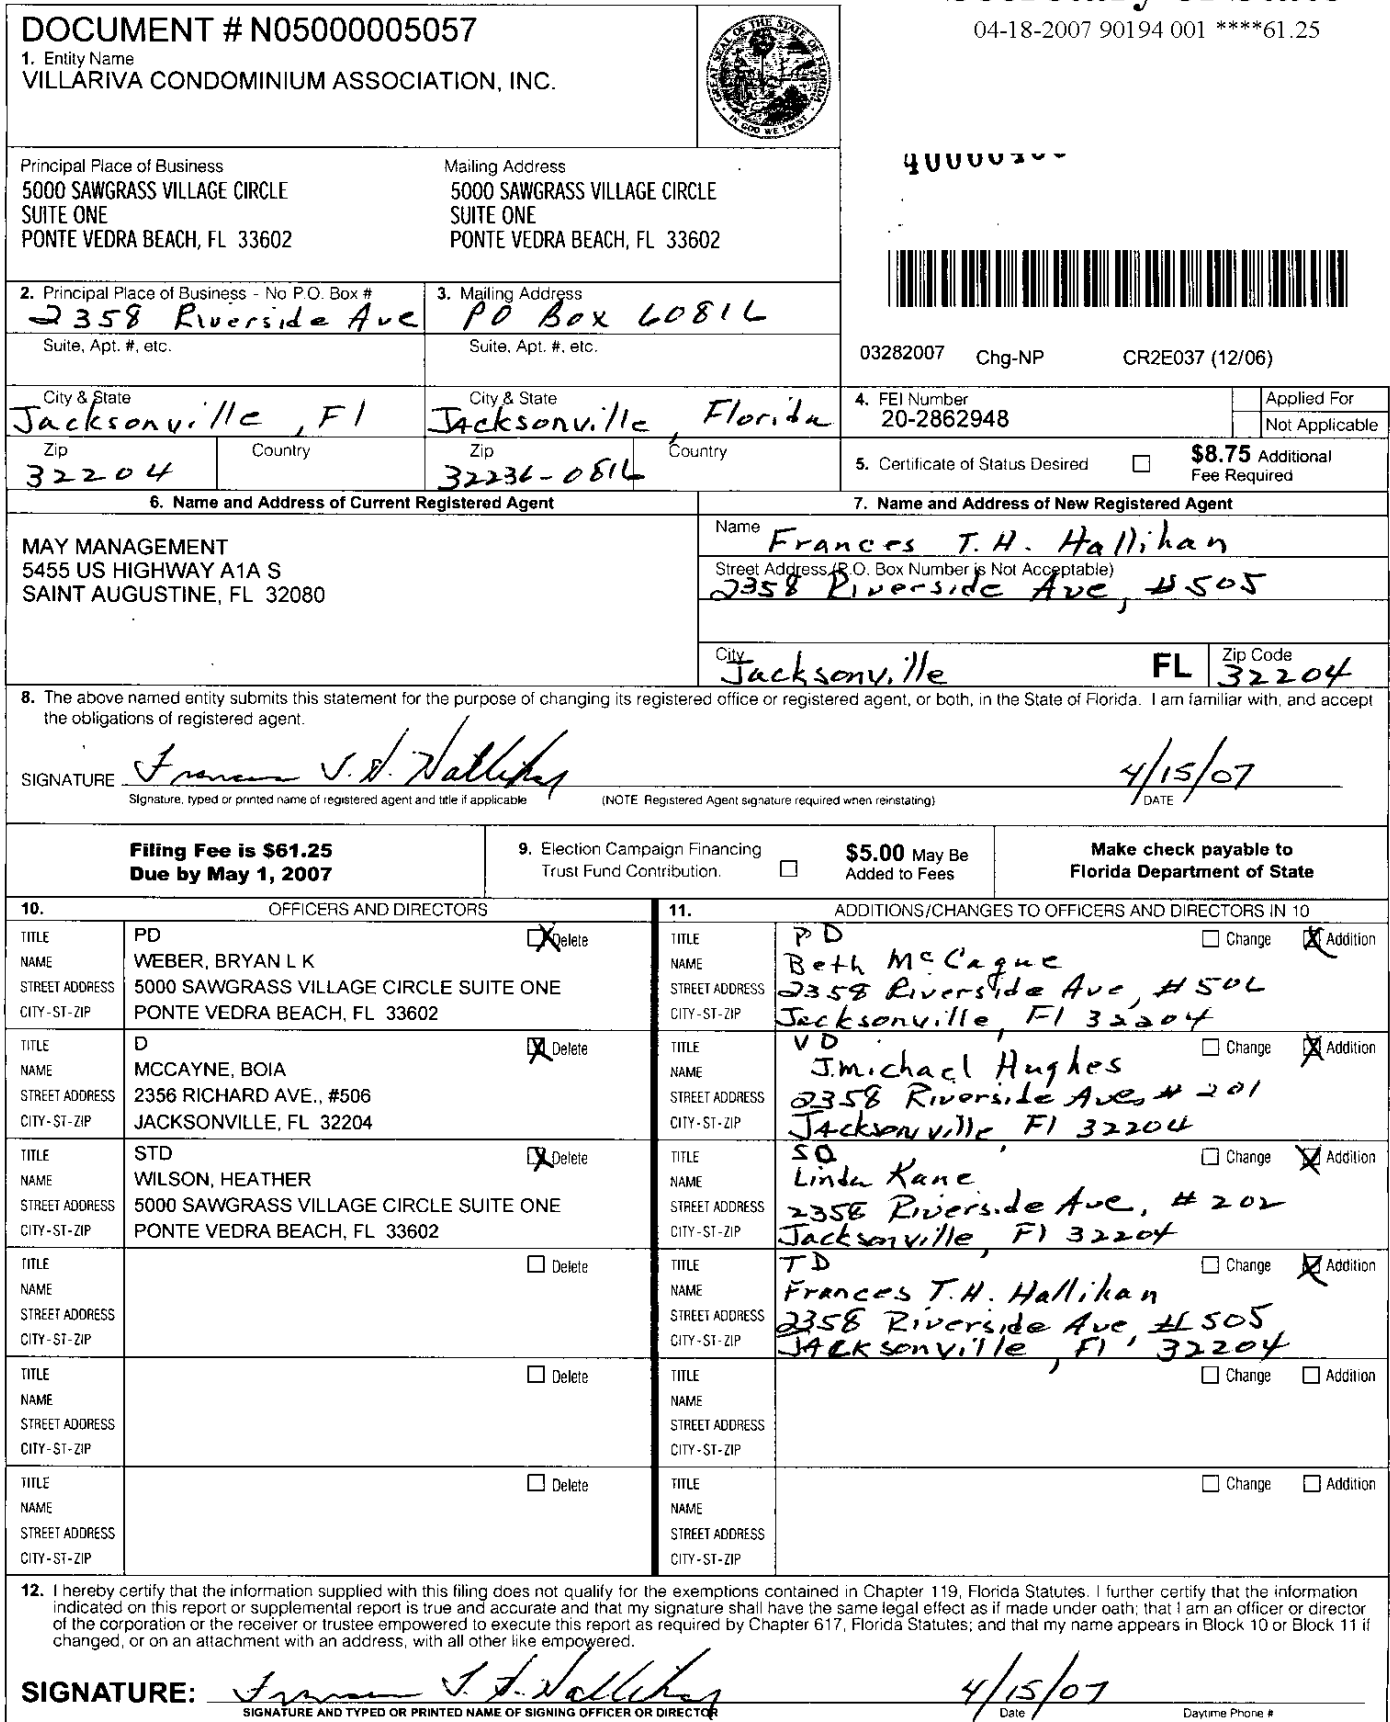 04-18-2007 90194 001 ****61.25
DOCUMENT # N05000005057
1. Entity Name
VILLARIVA CONDOMINIUM ASSOCIATION, INC.
GREAT SEAL OF THE STATE OF FLORIDA
IN GOD WE TRUST
Principal Place of Business
5000 SAWGRASS VILLAGE CIRCLE
SUITE ONE
PONTE VEDRA BEACH, FL 33602
Mailing Address
5000 SAWGRASS VILLAGE CIRCLE
SUITE ONE
PONTE VEDRA BEACH, FL 33602
2. Principal Place of Business - No P.O. Box #
2358 Riverside Ave
3. Mailing Address
PO Box 60816
Suite, Apt. #, etc.
Suite, Apt. #, etc.
03282007 Chg-NP CR2E037 (12/06)
City & State
Jacksonville, Fl
City & State
Jacksonville, Florida
4. FEI Number
20-2862948
Applied For
Not Applicable
Zip
32204
Country
Zip
32236-0816
Country
5. Certificate of Status Desired
$8.75 Additional
Fee Required
6. Name and Address of Current Registered Agent
MAY MANAGEMENT
5455 US HIGHWAY A1A S
SAINT AUGUSTINE, FL 32080
7. Name and Address of New Registered Agent
Name Frances T. H. Hallihan
Street Address (P.O. Box Number is Not Acceptable)
2358 Riverside Ave, #505
City Jacksonville FL Zip Code 32204
8. The above named entity submits this statement for the purpose of changing its registered office or registered agent, or both, in the State of Florida. I am familiar with, and accept
the obligations of registered agent.
SIGNATURE Frances T. H. Hallihan 4/15/07
Signature, typed or printed name of registered agent and title if applicable (NOTE Registered Agent signature required when reinstating) DATE
Filing Fee is $61.25
Due by May 1, 2007
9. Election Campaign Financing
Trust Fund Contribution.
$5.00 May Be
Added to Fees
Make check payable to
Florida Department of State
10. OFFICERS AND DIRECTORS
TITLE PD Delete
NAME WEBER, BRYAN L K
STREET ADDRESS 5000 SAWGRASS VILLAGE CIRCLE SUITE ONE
CITY-ST-ZIP PONTE VEDRA BEACH, FL 33602
TITLE D Delete
NAME MCCAYNE, BOIA
STREET ADDRESS 2356 RICHARD AVE., #506
CITY-ST-ZIP JACKSONVILLE, FL 32204
TITLE STD Delete
NAME WILSON, HEATHER
STREET ADDRESS 5000 SAWGRASS VILLAGE CIRCLE SUITE ONE
CITY-ST-ZIP PONTE VEDRA BEACH, FL 33602
TITLE Delete
NAME
STREET ADDRESS
CITY-ST-ZIP
TITLE Delete
NAME
STREET ADDRESS
CITY-ST-ZIP
TITLE Delete
NAME
STREET ADDRESS
CITY-ST-ZIP
11. ADDITIONS/CHANGES TO OFFICERS AND DIRECTORS IN 10
TITLE PD Change X Addition
NAME Beth McCague
STREET ADDRESS 2358 Riverside Ave, #506
CITY-ST-ZIP Jacksonville, Fl 32204
TITLE VD Change X Addition
NAME J. michael Hughes
STREET ADDRESS 2358 Riverside Ave, # 201
CITY-ST-ZIP Jacksonville, Fl 32204
TITLE SD Change X Addition
NAME Linda Kane
STREET ADDRESS 2358 Riverside Ave, # 202
CITY-ST-ZIP Jacksonville, Fl 32204
TITLE TD Change X Addition
NAME Frances T. H. Hallihan
STREET ADDRESS 2358 Riverside Ave #505
CITY-ST-ZIP Jacksonville, Fl, 32204
TITLE Change Addition
NAME
STREET ADDRESS
CITY-ST-ZIP
TITLE Change Addition
NAME
STREET ADDRESS
CITY-ST-ZIP
12. I hereby certify that the information supplied with this filing does not qualify for the exemptions contained in Chapter 119, Florida Statutes. I further certify that the information
indicated on this report or supplemental report is true and accurate and that my signature shall have the same legal effect as if made under oath; that I am an officer or director
of the corporation or the receiver or trustee empowered to execute this report as required by Chapter 617, Florida Statutes; and that my name appears in Block 10 or Block 11 if
changed, or on an attachment with an address, with all other like empowered.
SIGNATURE: Frances T. H. Hallihan 4/15/07
SIGNATURE AND TYPED OR PRINTED NAME OF SIGNING OFFICER OR DIRECTOR Date Daytime Phone #